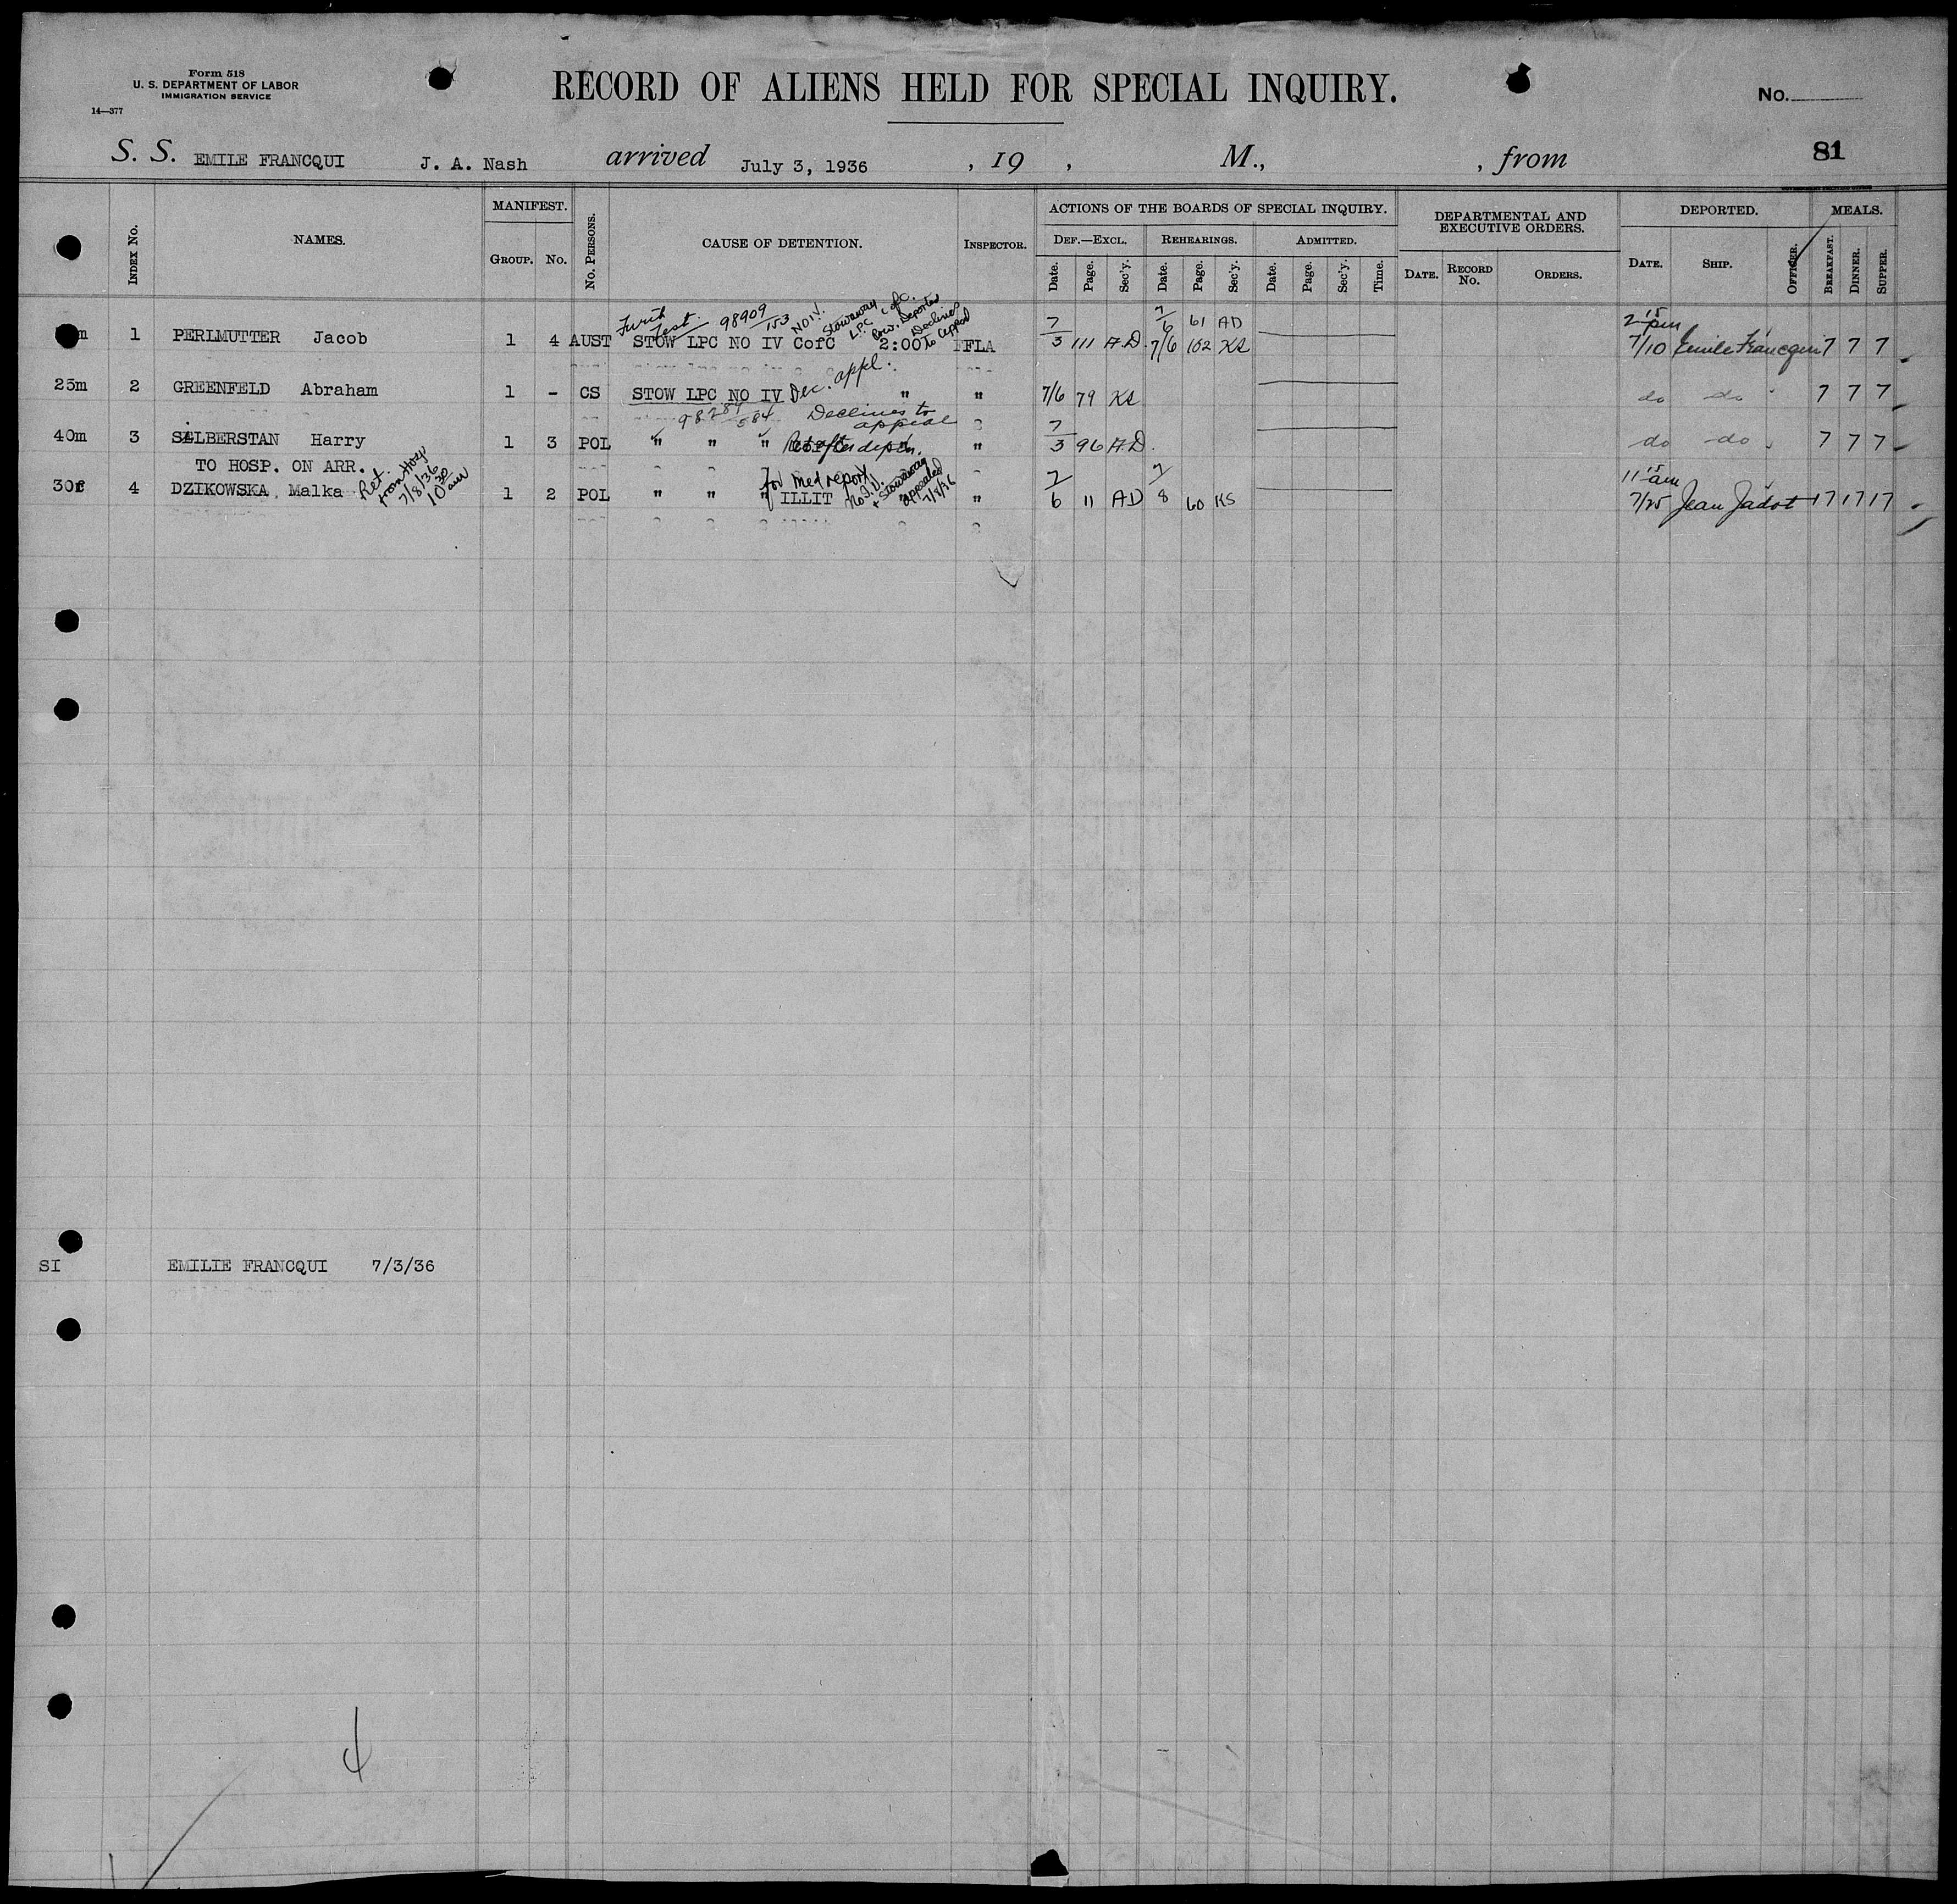 Form 518
U. S. DEPARTMENT OF LABOR
IMMIGRATION SERVICE
14—377
RECORD OF ALIENS HELD FOR SPECIAL INQUIRY.
No.
S. S. EMILE FRANCQUI J. A. Nash arrived July 3, 1936 , 19 , M., , from 81
INDEX No. NAMES. MANIFEST. GROUP. No. No. PERSONS. CAUSE OF DETENTION. INSPECTOR.
ACTIONS OF THE BOARDS OF SPECIAL INQUIRY.
DEF.—EXCL. REHEARINGS. ADMITTED.
Date. Page. Sec'y. Date. Page. Sec'y. Date. Page. Sec'y. Time.
DEPARTMENTAL AND
EXECUTIVE ORDERS.
DATE. RECORD No. ORDERS.
DEPORTED. DATE. SHIP. OFFICER.
MEALS. BREAKFAST. DINNER. SUPPER.
Test. 98909/153 NO IV. Stowaway L.P.C. C of C. Declined to appeal
7/6 61 AD 2 15 pm
m 1 PERLMUTTER Jacob 1 4 AUST STOW LPC NO IV CofC 2:00 FLA 7/3 111 A.D. 7/6 102 KS 7/10 Emile Francqui 7 7 7
25m 2 GREENFELD Abraham 1 - CS STOW LPC NO IV Dec. appl. " " 7/6 79 KS do do 7 7 7
Declines to appeal
40m 3 SILBERSTAN Harry 1 3 POL " " " " 7/3 96 A.D. do do 7 7 7
TO HOSP. ON ARR. Ret. from Hosp 7/8/36 10 30 am
for med report No I.V. + Stowaway appealed 7/8/36
30f 4 DZIKOWSKA, Malka 1 2 POL " " " ILLIT " 7/6 11 AD 7/8 60 KS 11 15 am 7/25 Jean Jadot 17 17 17
SI EMILIE FRANCQUI 7/3/36
4